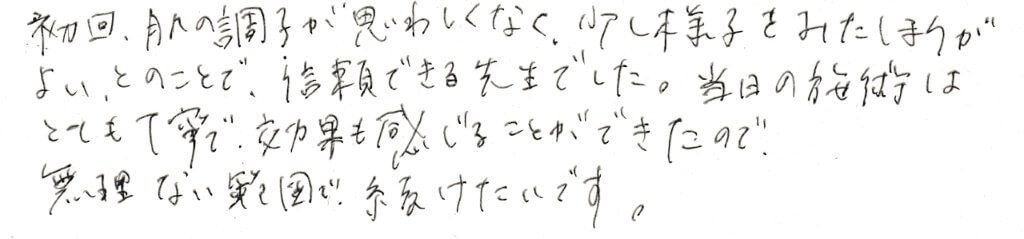 初回、肌の調子が思わしくなく、少し様子をみたほうが
よい、とのことで、信頼できる先生でした。当日の施術は
とても丁寧で、効果も感じることができたので、
無理ない範囲で、続けたいです。